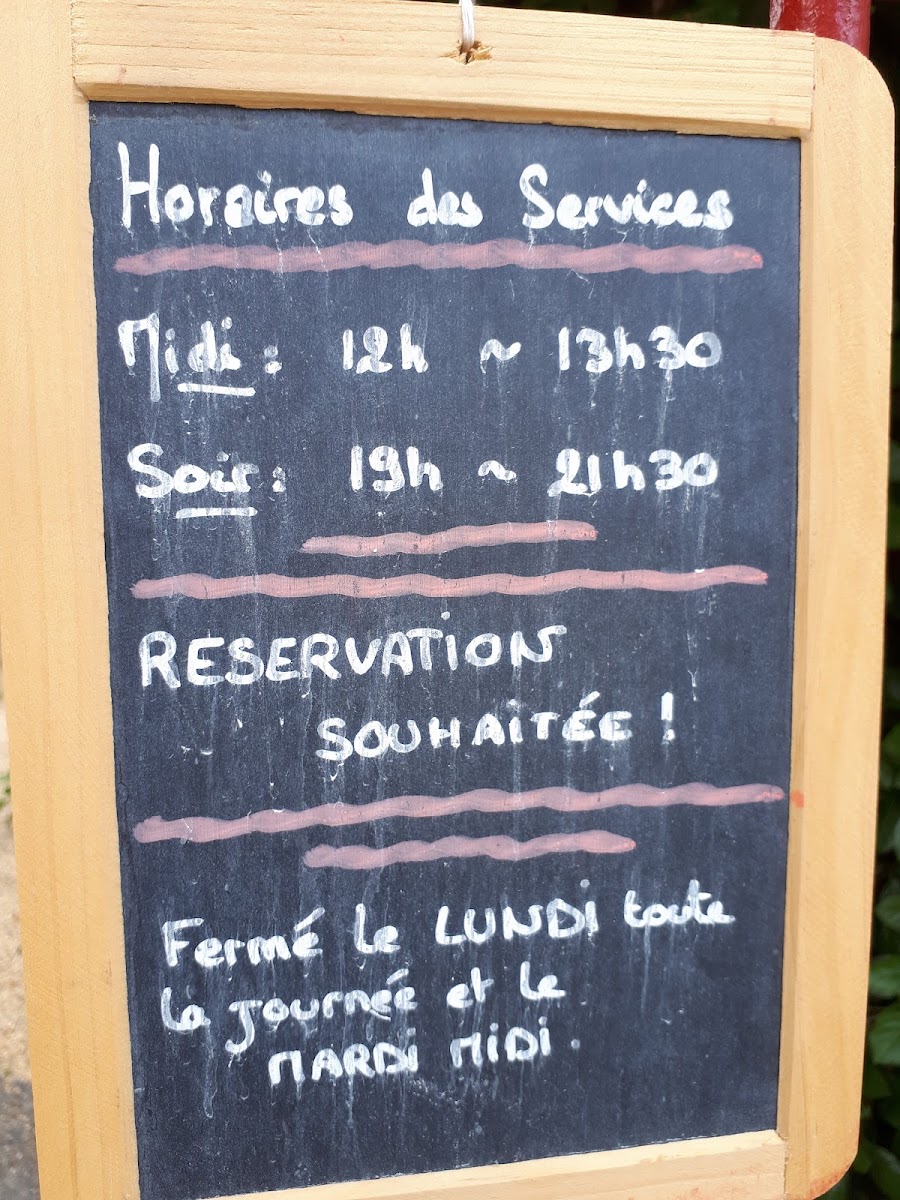 Horaires des Services
Midi : 12h ~ 13h30
Soir : 19h ~ 21h30
RESERVATION
SOUHAITÉE !
Fermé le LUNDI toute
la journée et le
MARDI MIDI.